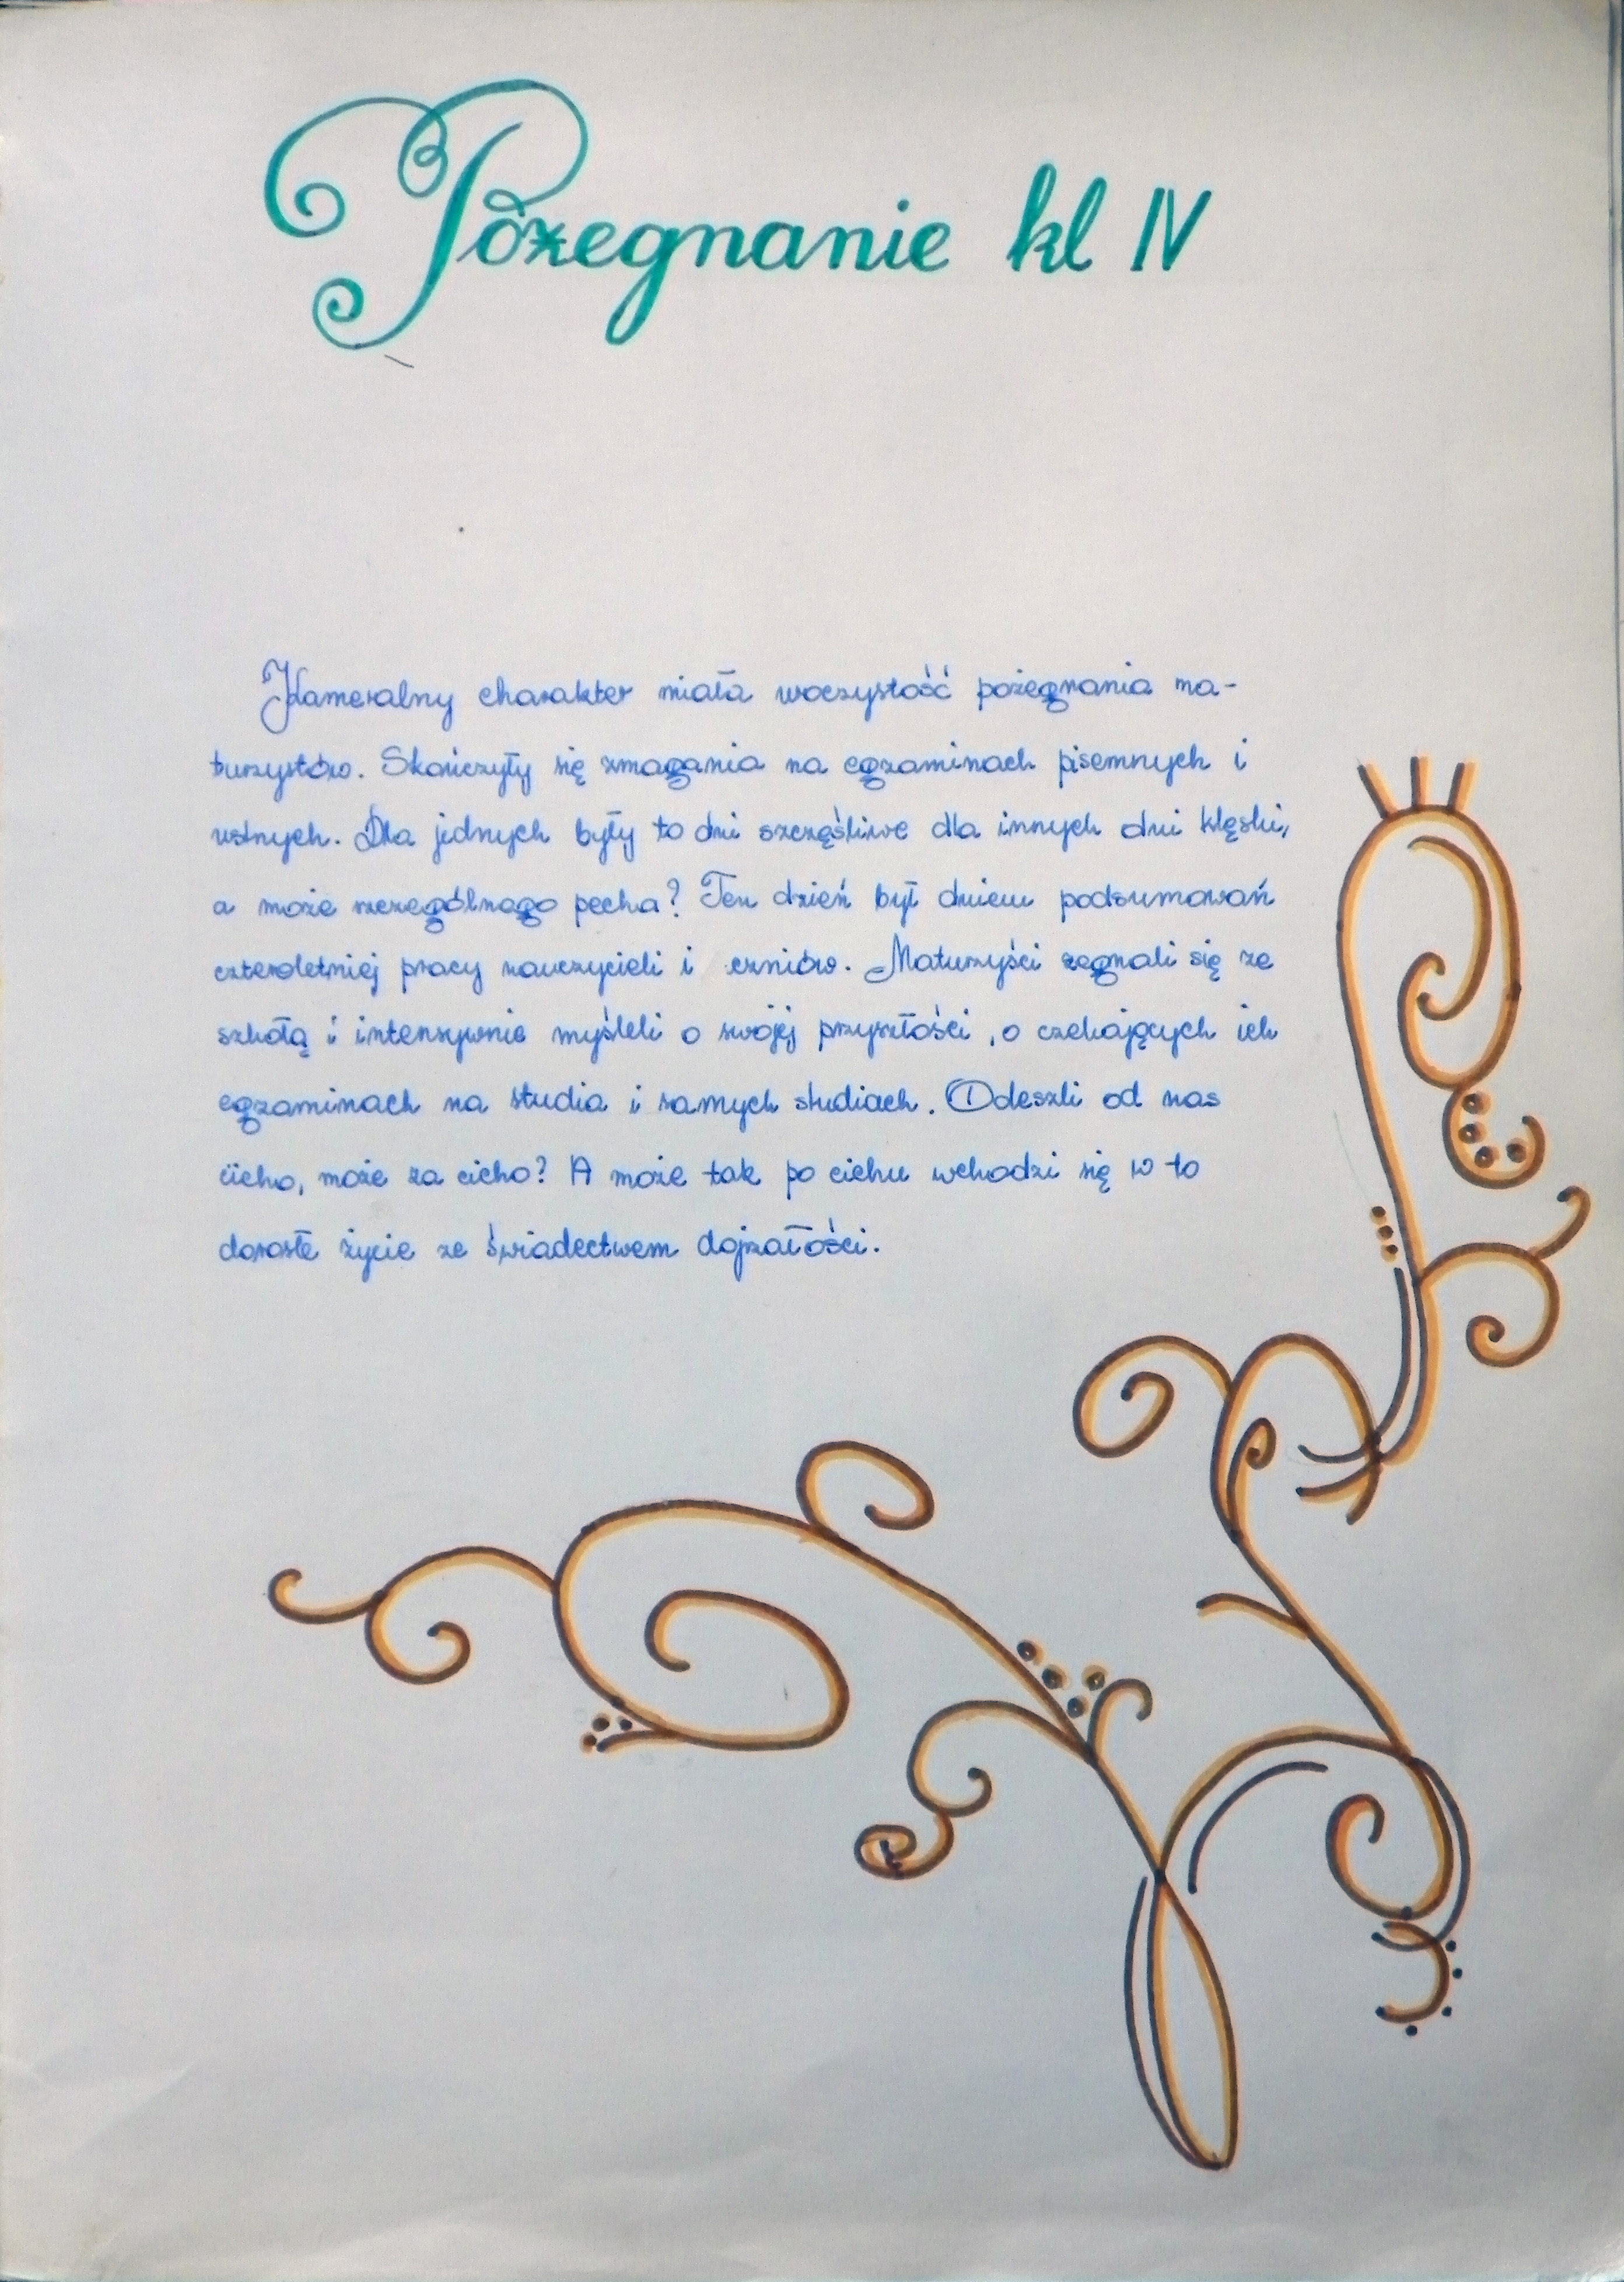 Pożegnanie kl IV
Kameralny charakter miała uroczystość pożegnania ma-
turzystów. Skończyły się zmagania na egzaminach pisemnych i
ustnych. Dla jednych były to dni szczęśliwe dla innych dni klęski,
a może szczególnego pecha? Ten dzień był dniem podsumowań
czteroletniej pracy nauczycieli i czniów. Maturzyści żegnali się ze
szkołą i intensywnie myśleli o swojej przyszłości, o czekających ich
egzaminach na studia i samych studiach. Odeszli od nas
cicho, może za cicho? A może tak po cichu wchodzi się w to
dorosłe życie ze świadectwem dojrzałości.